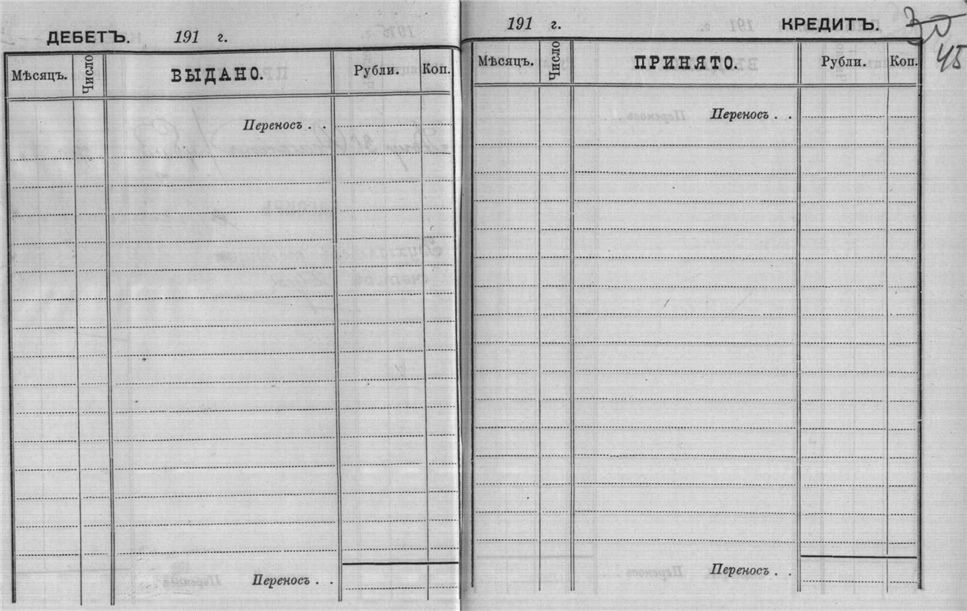 ДЕБЕТЪ. 191 г.
Мѣсяцъ. Число ВЫДАНО. Рубли. Коп.
Переносъ . .
Переносъ . .
191 г. КРЕДИТЪ. 30
45
Мѣсяцъ. Число ПРИНЯТО. Рубли. Коп.
Переносъ . .
Переносъ . .